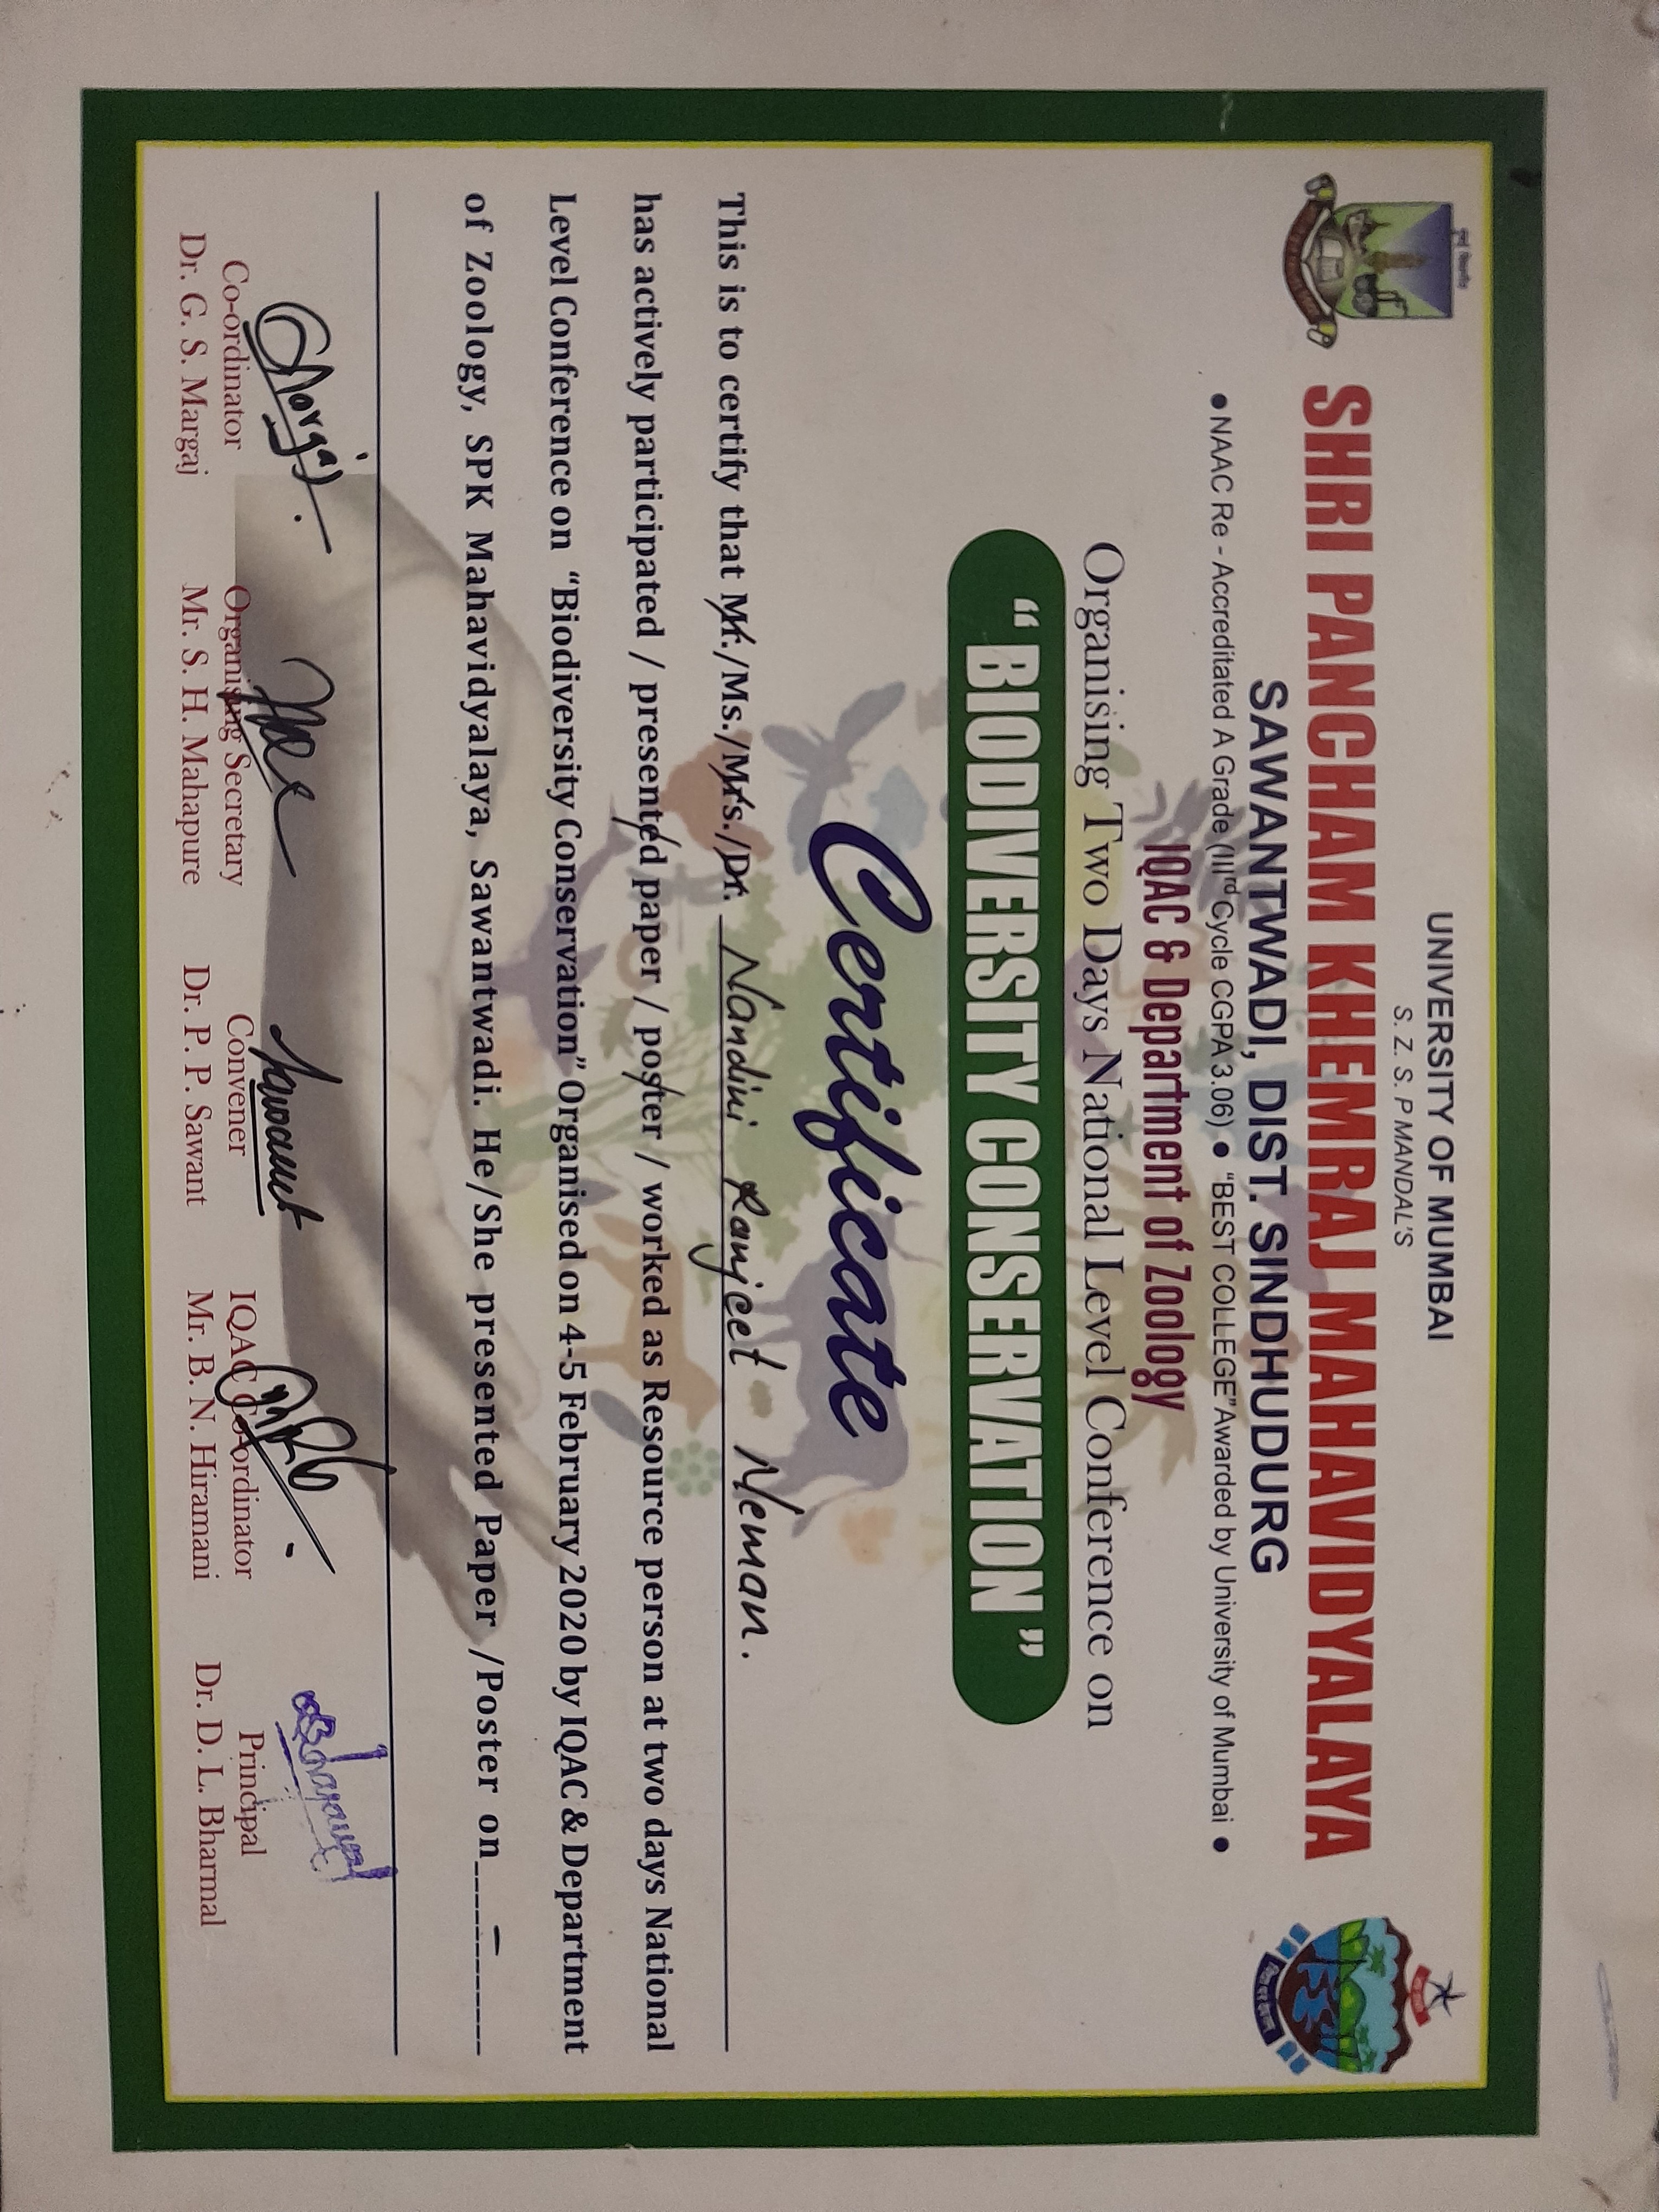 मुंबई विद्यापीठ
UNIVERSITY OF MUMBAI
S. Z. S. P MANDAL'S
SHRI PANCHAM KHEMRAJ MAHAVIDYALAYA
SAWANTWADI, DIST. SINDHUDURG
● NAAC Re - Accreditated A Grade (IIIrd Cycle CGPA 3.06) ● “BEST COLLEGE”Awarded by University of Mumbai ●
IQAC & Department of Zoology
Organising Two Days National Level Conference on
“ BIODIVERSITY CONSERVATION ”
Certificate
This is to certify that Mr./Ms./Mrs./Dr. Nandini Ranjeet Neman.
has actively participated / presented paper / poster / worked as Resource person at two days National
Level Conference on “Biodiversity Conservation” Organised on 4-5 February 2020 by IQAC & Department
of Zoology, SPK Mahavidyalaya, Sawantwadi. He/She presented Paper /Poster on____–____
Co-ordinator
Dr. G. S. Margaj
Organising Secretary
Mr. S. H. Mahapure
Convener
Dr. P. P. Sawant
IQAC Co-ordinator
Mr. B. N. Hiramani
Principal
Dr. D. L. Bharmal